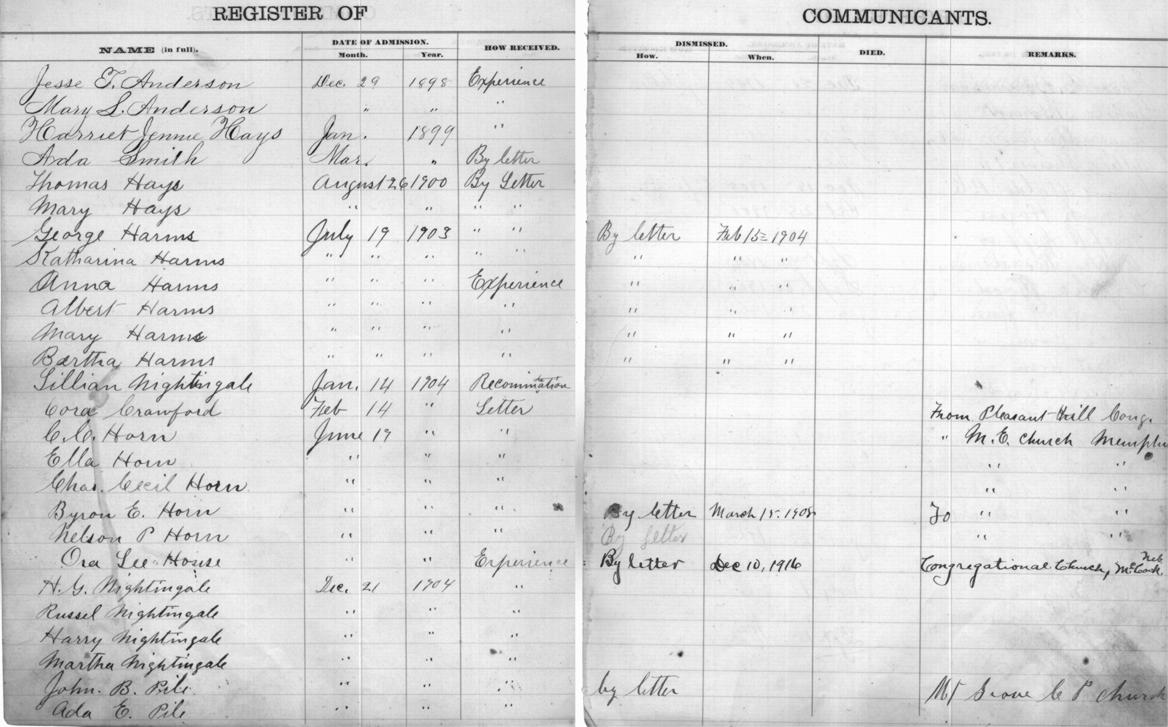 REGISTER OF COMMUNICANTS.
NAME (in full). DATE OF ADMISSION. HOW RECEIVED. DISMISSED. DIED. REMARKS.
Month. Year. How. When.
Jesse T. Anderson Dec. 29 1898 Experience
Mary L. Anderson " " "
Harriet Jennie Hays Jan. 1899 "
Ada Smith Mar. " By letter
Thomas Hays August 26 1900 By Letter
Mary Hays " " " "
George Harms July 19 1903 " " By letter Feb 15 = 1904
Katharina Harms " " " " " " " "
Anna Harms " " " Experience " " "
Albert Harms " " " " " " "
Mary Harms " " " " " " "
Bertha Harms " " " " " " "
Lillian Nightingale Jan. 14 1904
Cora Crawford Feb 14 " Letter From Pleasant Hill Cong.
C. C. Horn June 19 " " " M. E. Church
Ella Horn " " " " "
Chas. Cecil Horn " " " " "
Byron E. Horn " " " By letter March 15. To " "
Nelson P Horn " " " By letter " "
Ora Lee House " " Experience By letter Dec 10, 1916 Congregational Church, McCook, Neb
H. G. Nightingale Dec. 21 1904 "
Russel Nightingale " " "
Harry Nightingale " " "
Martha Nightingale " " "
John. B. Pile " " " by letter Mt Grove C P church
Ada E. Pile " " "